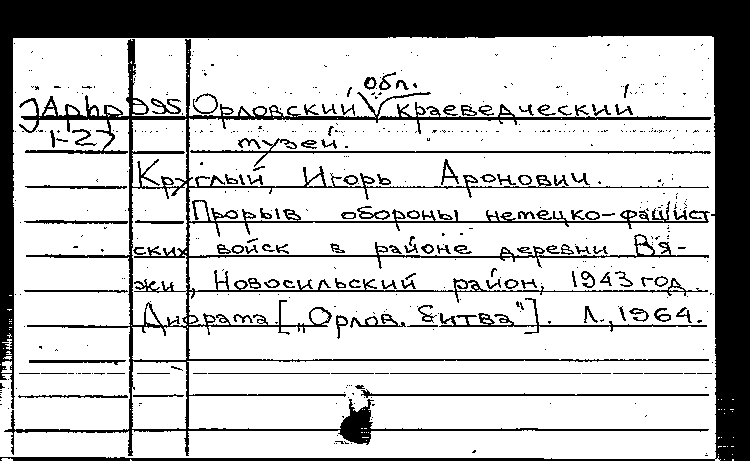 обл.
Орловский краеведческий
1-23
музей.
Круглый, Игорь Аронович.
Прорыв обороны немецко-фашист-
ских войск в районе деревни Вя-
жи, Новосильский район, 1943 год.
Диорама. [„Орлов. битва"]. Л., 1964.